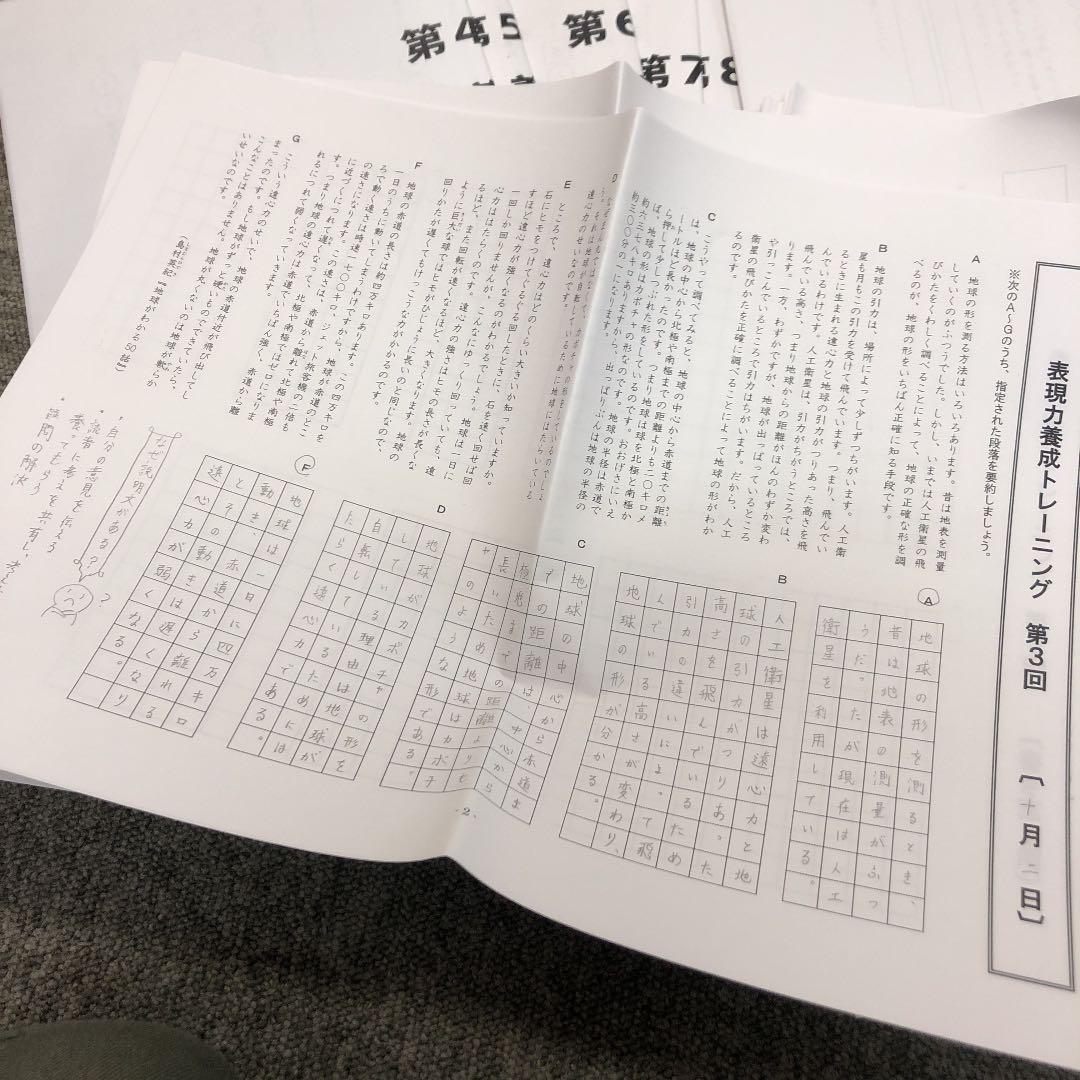 第4
第5
第6
第7
第8
表現力養成トレーニング 第3回 〔十月二日〕
※次のA〜Gのうち、指定された段落を要約しましょう。
A
地球の形を測る方法はいろいろあります。昔は地表を測量
していくのがふつうでした。しかし、いまでは人工衛星の飛
びかたをくわしく調べることによって、地球の正確な形を調
べるのが、地球の形をいちばん正確に知る手段です。
B
地球の引力は、場所によって少しずつちがいます。人工衛
星も月もこの引力を受けて飛んでいます。つまり、飛んでい
るときに生まれる遠心力と地球の引力がつりあった高さを飛
んでいるわけです。人工衛星は、引力がちがうところでは、
飛んでいる高さ、つまり地球からの距離がほんのわずか変わ
ります。一方、わずかですが、地球が出っぱっているところ
や引っこんでいるところで引力はちがいます。だから、人工
衛星の飛びかたを正確に調べることによって地球の形がわか
るのです。
C
こうやって調べてみると、地球の中心から赤道までの距離
は、地球の中心から北極や南極までの距離よりも二〇キロメ
ートルほど長かったのです。つまり地球は球を北極と南極か
ら押して少しつぶれた形をしているのです。おおげさにいえ
ば、地球の形はカボチャの形なのです。地球の半径は赤道で
約六三七八キロありますから、出っぱりぶんは地球の半径の
約三〇〇分の一になります。
D
遠心力のせいなのです。
E
ところで、遠心力はどのくらい大きいか知っていますか。
石にヒモをつけてぐるぐる回したときに、石を速く回せば回
すほど遠心力が強くなるのがわかるでしょう。地球は一日に
一回しか回りませんが、こんなにゆっくり回っていても、遠
心力ははたらくのです。遠心力の強さはヒモの長さが長くな
るほど、また回転が速くなるほど、大きくなります。地球の
ように巨大な球ではヒモがひじょうに長いのと同じなので、
回りかたが遅くてもけっこうな力がかかるのです。
F
地球の赤道の長さは約四万キロあります。この四万キロを
一日のうちに動いてしまうわけですから、地球が赤道のとこ
ろで動く速さは時速一七〇〇キロ、ジェット旅客機の二倍も
の速さになります。この速さは、赤道から離れて北極や南極
に近づくにつれて遅くなって、北極や南極ではゼロになりま
す。つまり地球の遠心力は赤道でいちばん強く、赤道から離
れるにつれて弱くなっていきます。
G
こういう遠心力のせいで、地球の赤道付近が飛び出してし
まったのです。もし地球がずっと硬いものでできていたら、
こんなことはありません。地球が丸くないのは地球が軟らか
いせいなのです。
（島村英紀『地球がわかる50話』）
A
地球の形を測るとき、
昔は地表の測量がふつ
うだったが現在は人工
衛星を利用している。
B
人工衛星は遠心力と地
球の引力がつりあった
高さを飛んでいるため
引力の違いによって飛
んでいる高さが変わり、
地球の形が分かる。
C
地球の中心から赤道ま
での距離は、中心から
極までの距離よりも
長いため地球はカボチ
ャのような形である。
D
地球がカボチャの形を
している理由は地球が
自転しているためには
たらく遠心力である。
F
地球は一日に四万キロ
動き、赤道から離れる
と、その動きは遅くなり
遠心力が弱くなる。
なぜ説明文がある？
・自分の意見
・読者に考えを伝える
考えてもらう
疑問の解決
・2・